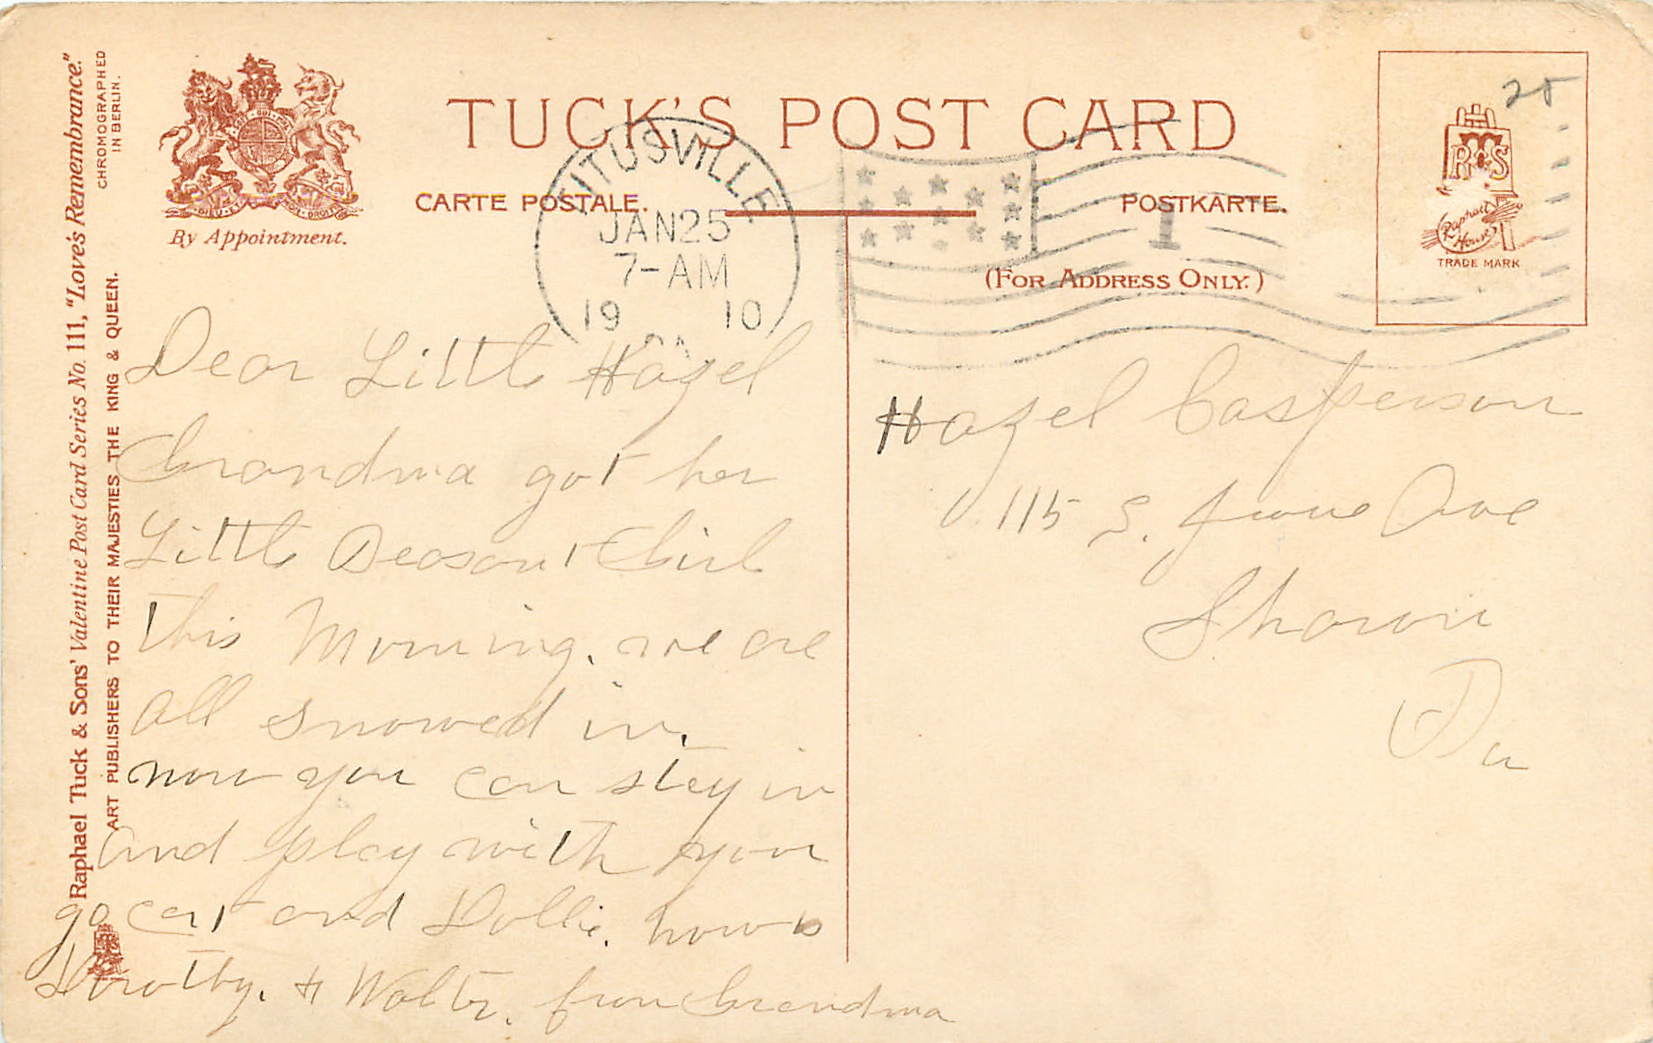 Raphael Tuck & Sons' Valentine Post Card Series No. 111, "Love's Remembrance."
ART PUBLISHERS TO THEIR MAJESTIES THE KING & QUEEN.
CHROMOGRAPHED
IN BERLIN.
By Appointment.
TUCK'S POST CARD
CARTE POSTALE.
POSTKARTE.
(FOR ADDRESS ONLY.)
TITUSVILLE
JAN 25
7-AM
1910
PA
1
25
R T S
Raphael
House
TRADE MARK
Dear Little Hazel
Grandma got her
Little Girl
this Morning. we are
all snowed in.
now you can stay in
and play with you
go cart and Dollie. hows
Dorothy. + Walter. from Grandma
Hazel Casperson
115 S. Ave
Sharon
Pa